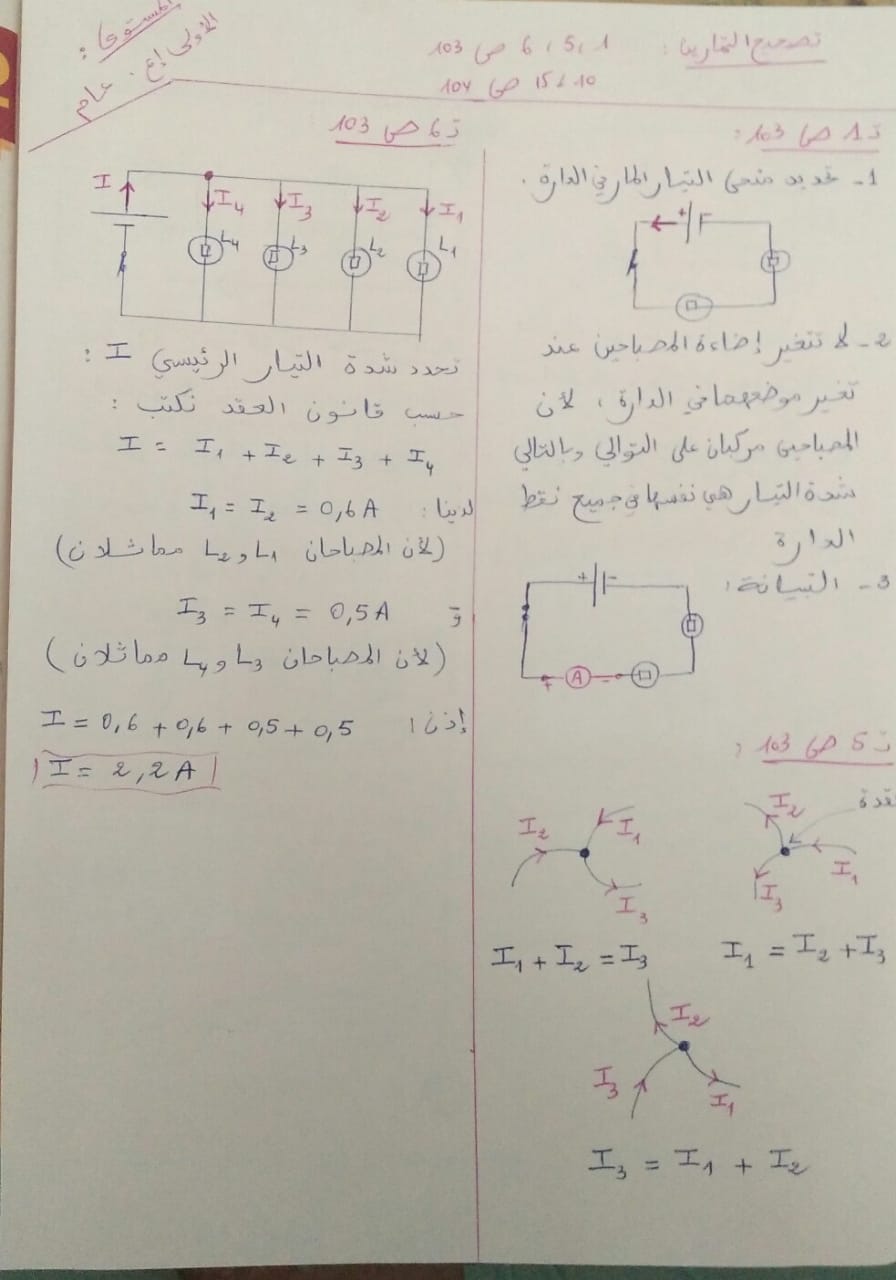 المستوى :
الأولى إع . عام
تصحيح التمارين : 1 ، 5 ، 6 ص 103
10 و 15 ص 104
ت 1 ص 103 :
1- تحديد منحى التيار المار في الدارة .
+
2- لا تتغير إضاءة المصباحين عند
تغيير موضعهما في الدارة ، لأن
المصباحين مركبان على التوالي وبالتالي
شدة التيار هي نفسها في جميع نقط
الدارة
3- التبيانة :
+ -
+ A -
ت 5 ص 103 :
قدة
I2
I1
I3
I1 = I2 + I3
I2
I1
I3
I1 + I2 = I3
I2
I3
I1
I3 = I1 + I2
ت 6 ص 103
I I4 I3 I2 I1
L4 L3 L2 L1
نحدد شدة التيار الرئيسي I :
حسب قانون العقد نكتب :
I = I1 + I2 + I3 + I4
لدينا : I1 = I2 = 0,6 A
(لأن المصباحان L1 و L2 مماثلان)
و I3 = I4 = 0,5 A
(لأن المصباحان L3 و L4 مماثلان)
إذن : I = 0,6 + 0,6 + 0,5 + 0,5
I = 2,2 A